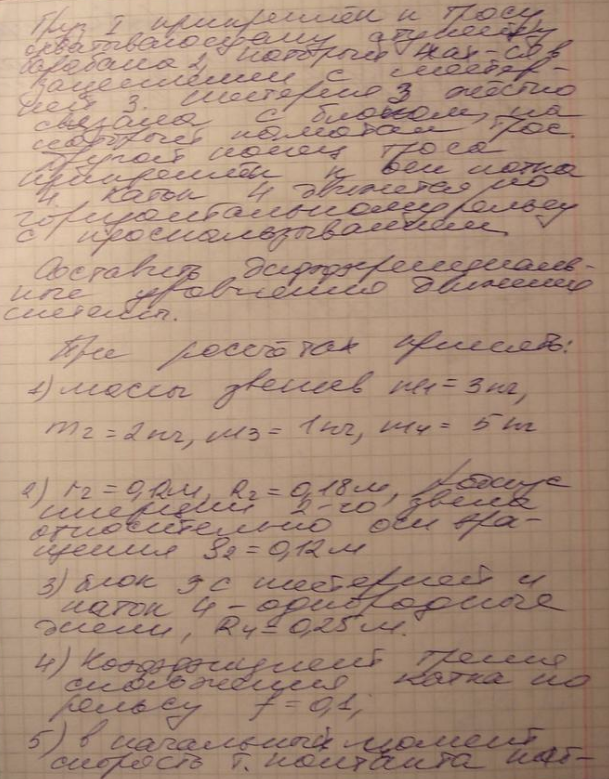 Груз 1 прикреплён к тросу
охватывающему ступеньку
барабана 2, который нах-ся в
зацеплении с шестер-
ней 3. Шестерня 3 жёстко
связана с блоком, на
который намотан трос.
Другой конец троса
прикреплён к оси катка
4. Каток 4 движется по
горизонтальному рельсу
с проскальзыванием.
Составить дифференциаль-
ные уравнения движения
системы.
При рассчётах принять:
1) массы звеньев m1 = 3кг,
m2 = 2кг, m3 = 1кг, m4 = 5кг
2) r2 = 0,12м, R2 = 0,18м, радиус
инерции 2-го звена
относительно оси вра-
щения ρ2 = 0,12м
3) блок 3 с шестерней и
каток 4 - однородные
R4 = 0,25м.
4) Коэффициент трения
скольжения катка по
рельсу f = 0,1;
5) в начальный момент
скорость т. контакта кат-